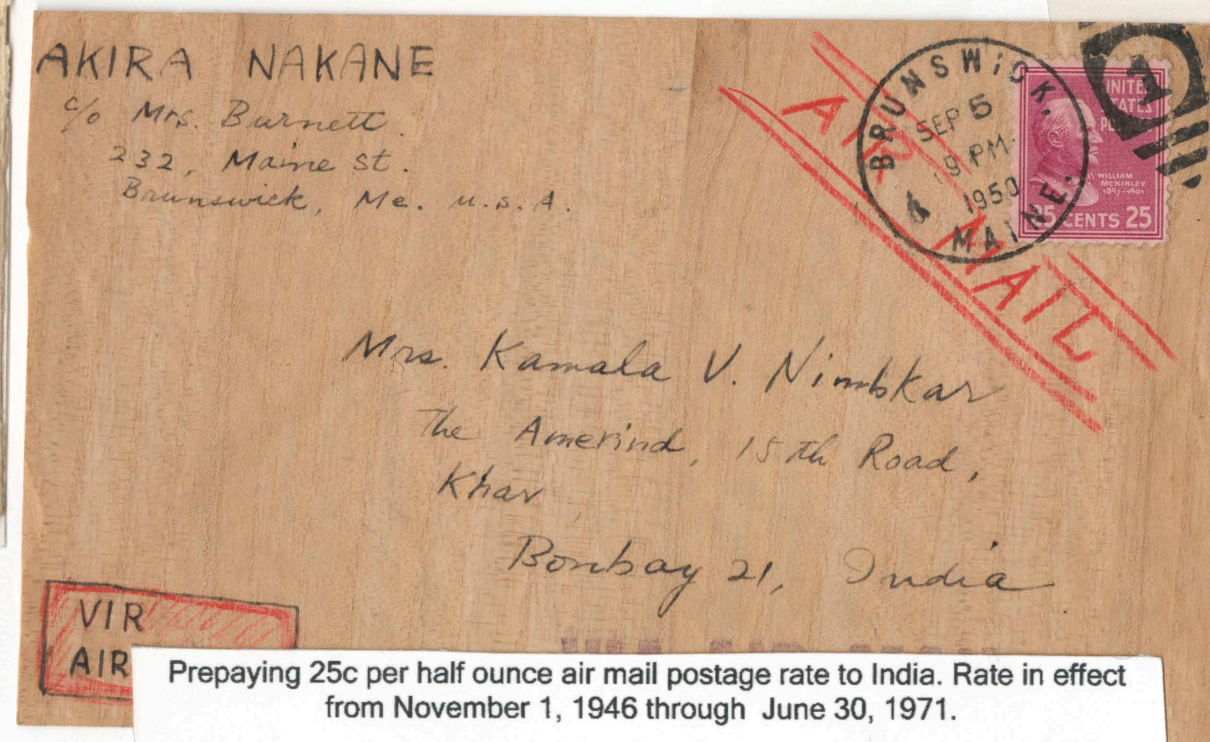 AKIRA NAKANE
c/o Mrs. Burnett.
232, Maine St.
Brunswick, Me. U.S.A.
AIR MAIL
BRUNSWICK,
SEP 5
9 PM
1950
MAINE.
1
UNITED
STATES
WILLIAM
MCKINLEY
1897-1901
25 CENTS 25
Mrs. Kamala V. Nimbkar
The Amerind, 15th Road,
Khar
Bombay 21, India
VIR
AIR
Prepaying 25c per half ounce air mail postage rate to India. Rate in effect
from November 1, 1946 through June 30, 1971.